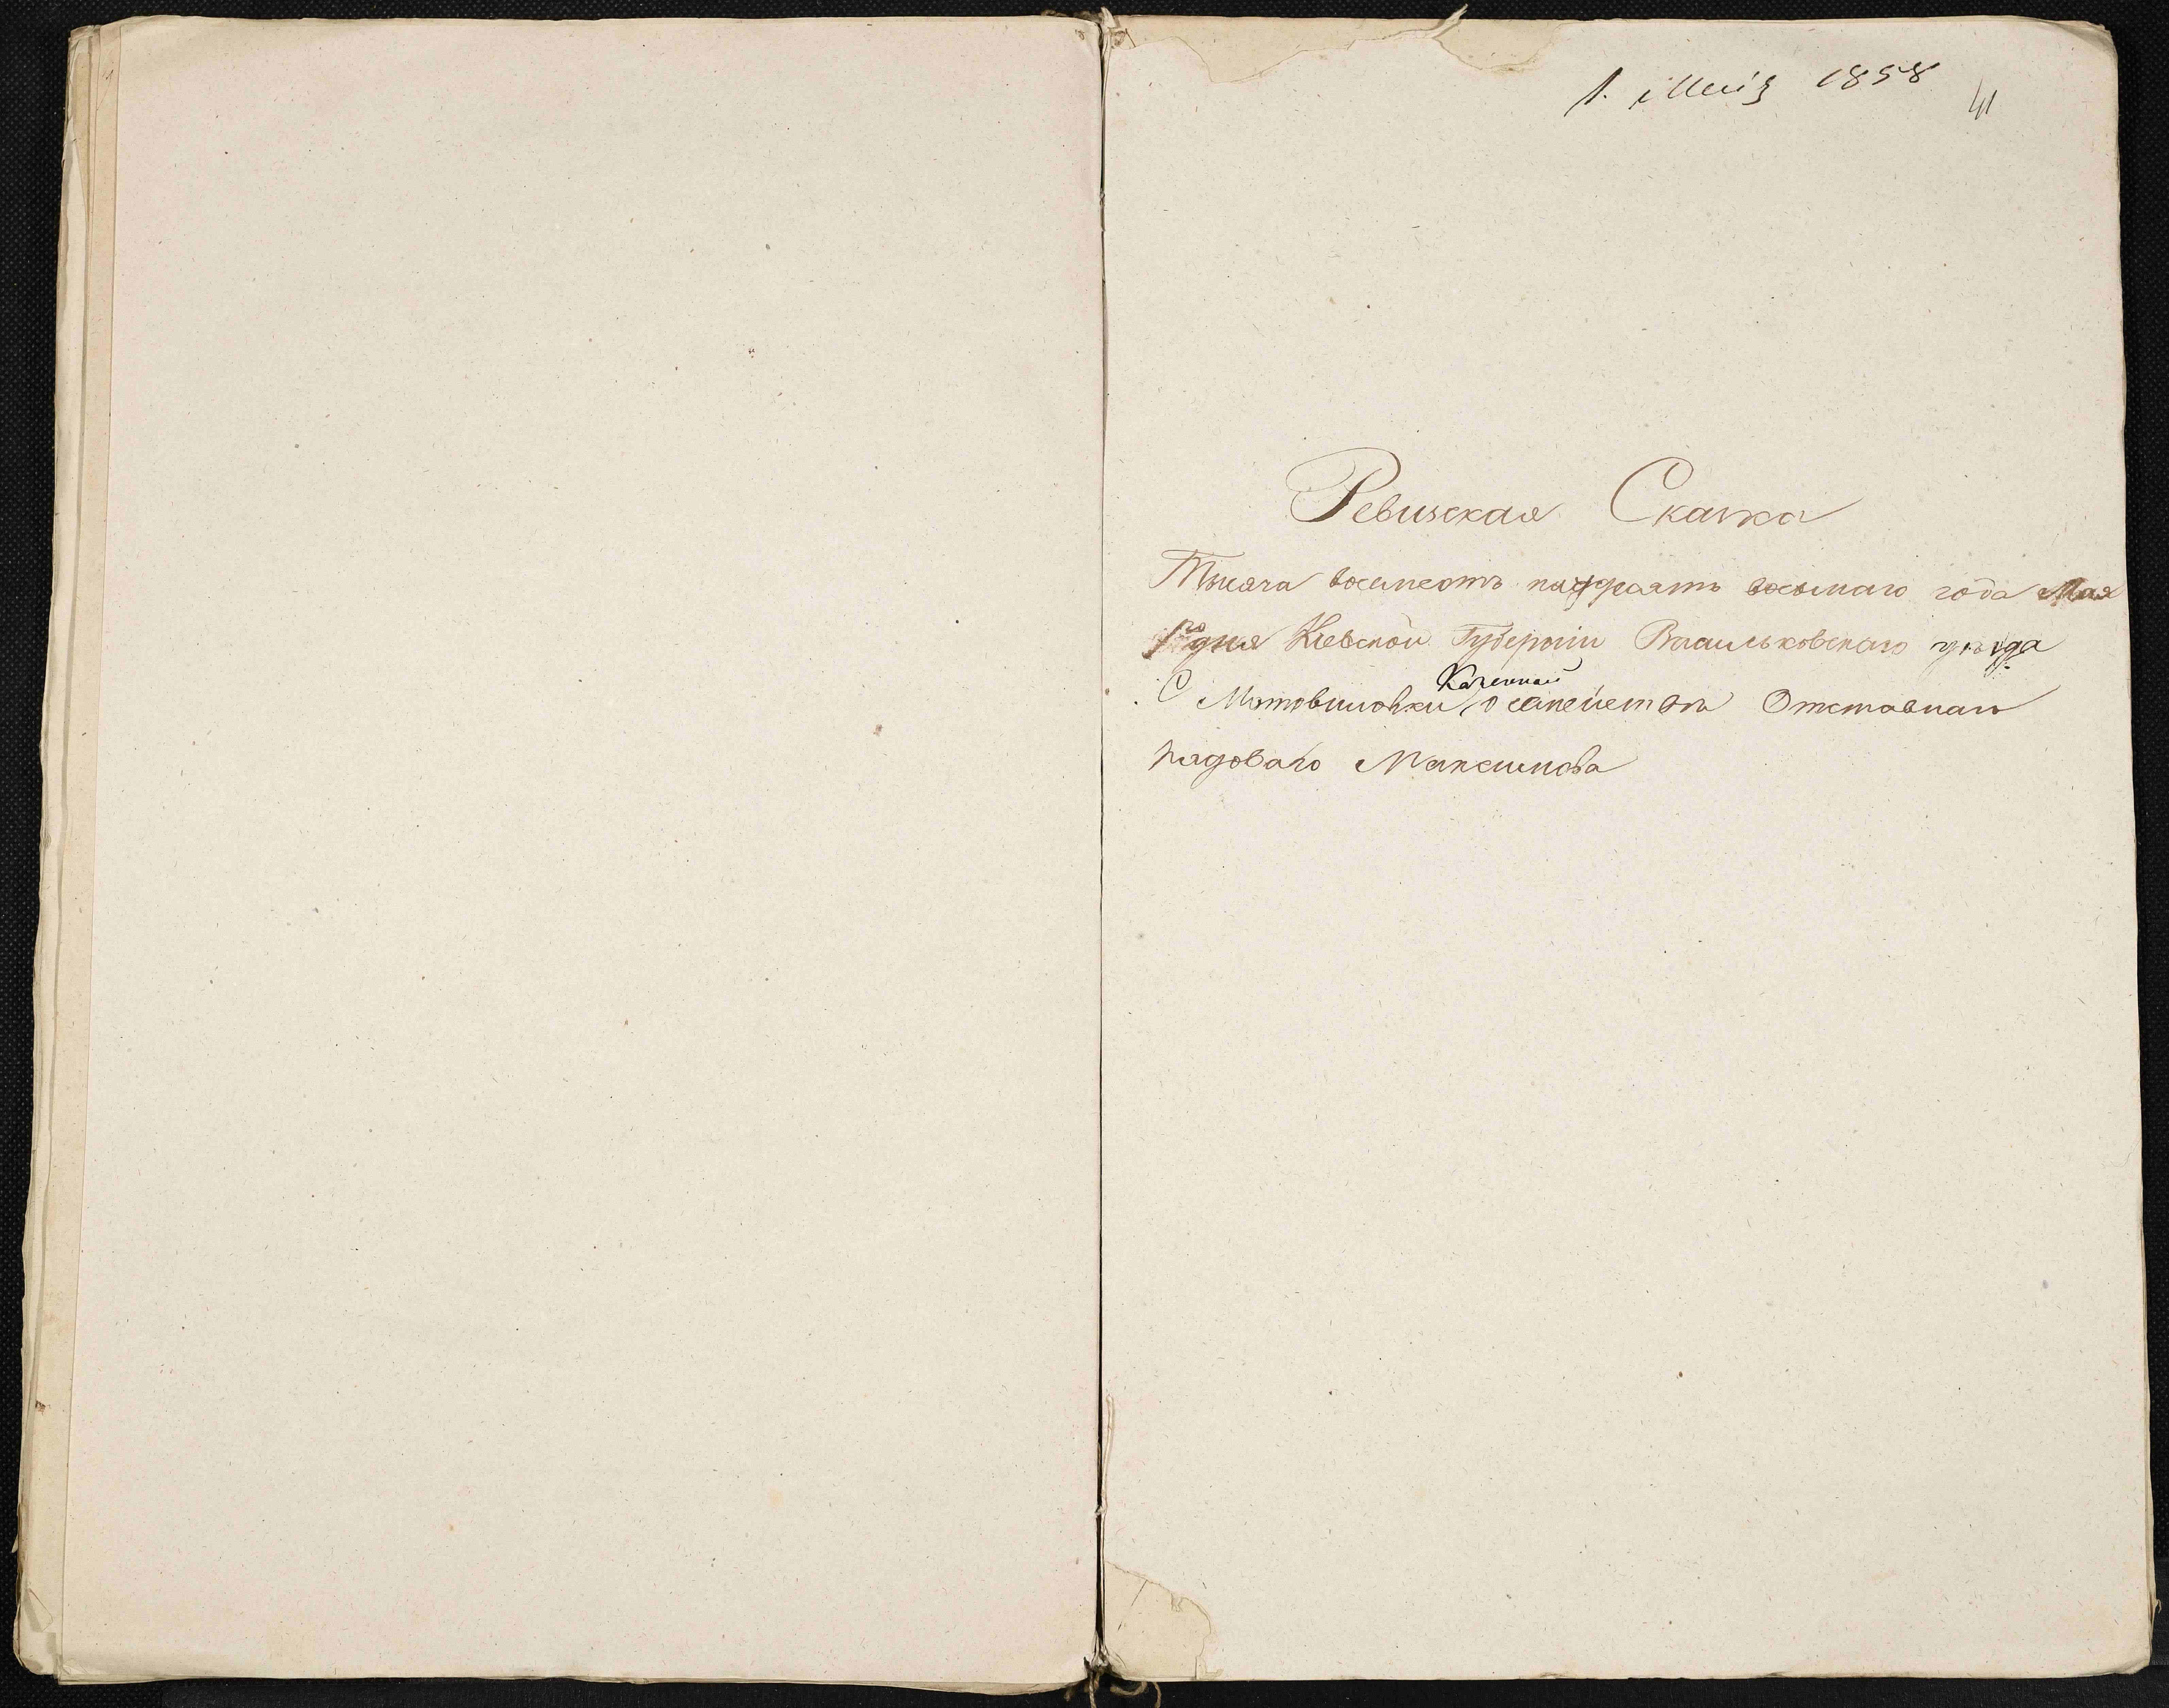 1. Маія 1858
41
Ревизская Сказка
Тысяча восемсотъ пятдѣсятъ восьмаго года Мая
1го дня Кіевской Губерніи Васильковскаго уѣзда
С Мотовиловки Казенной о семействѣ Отставнаго
рядоваго Максимова